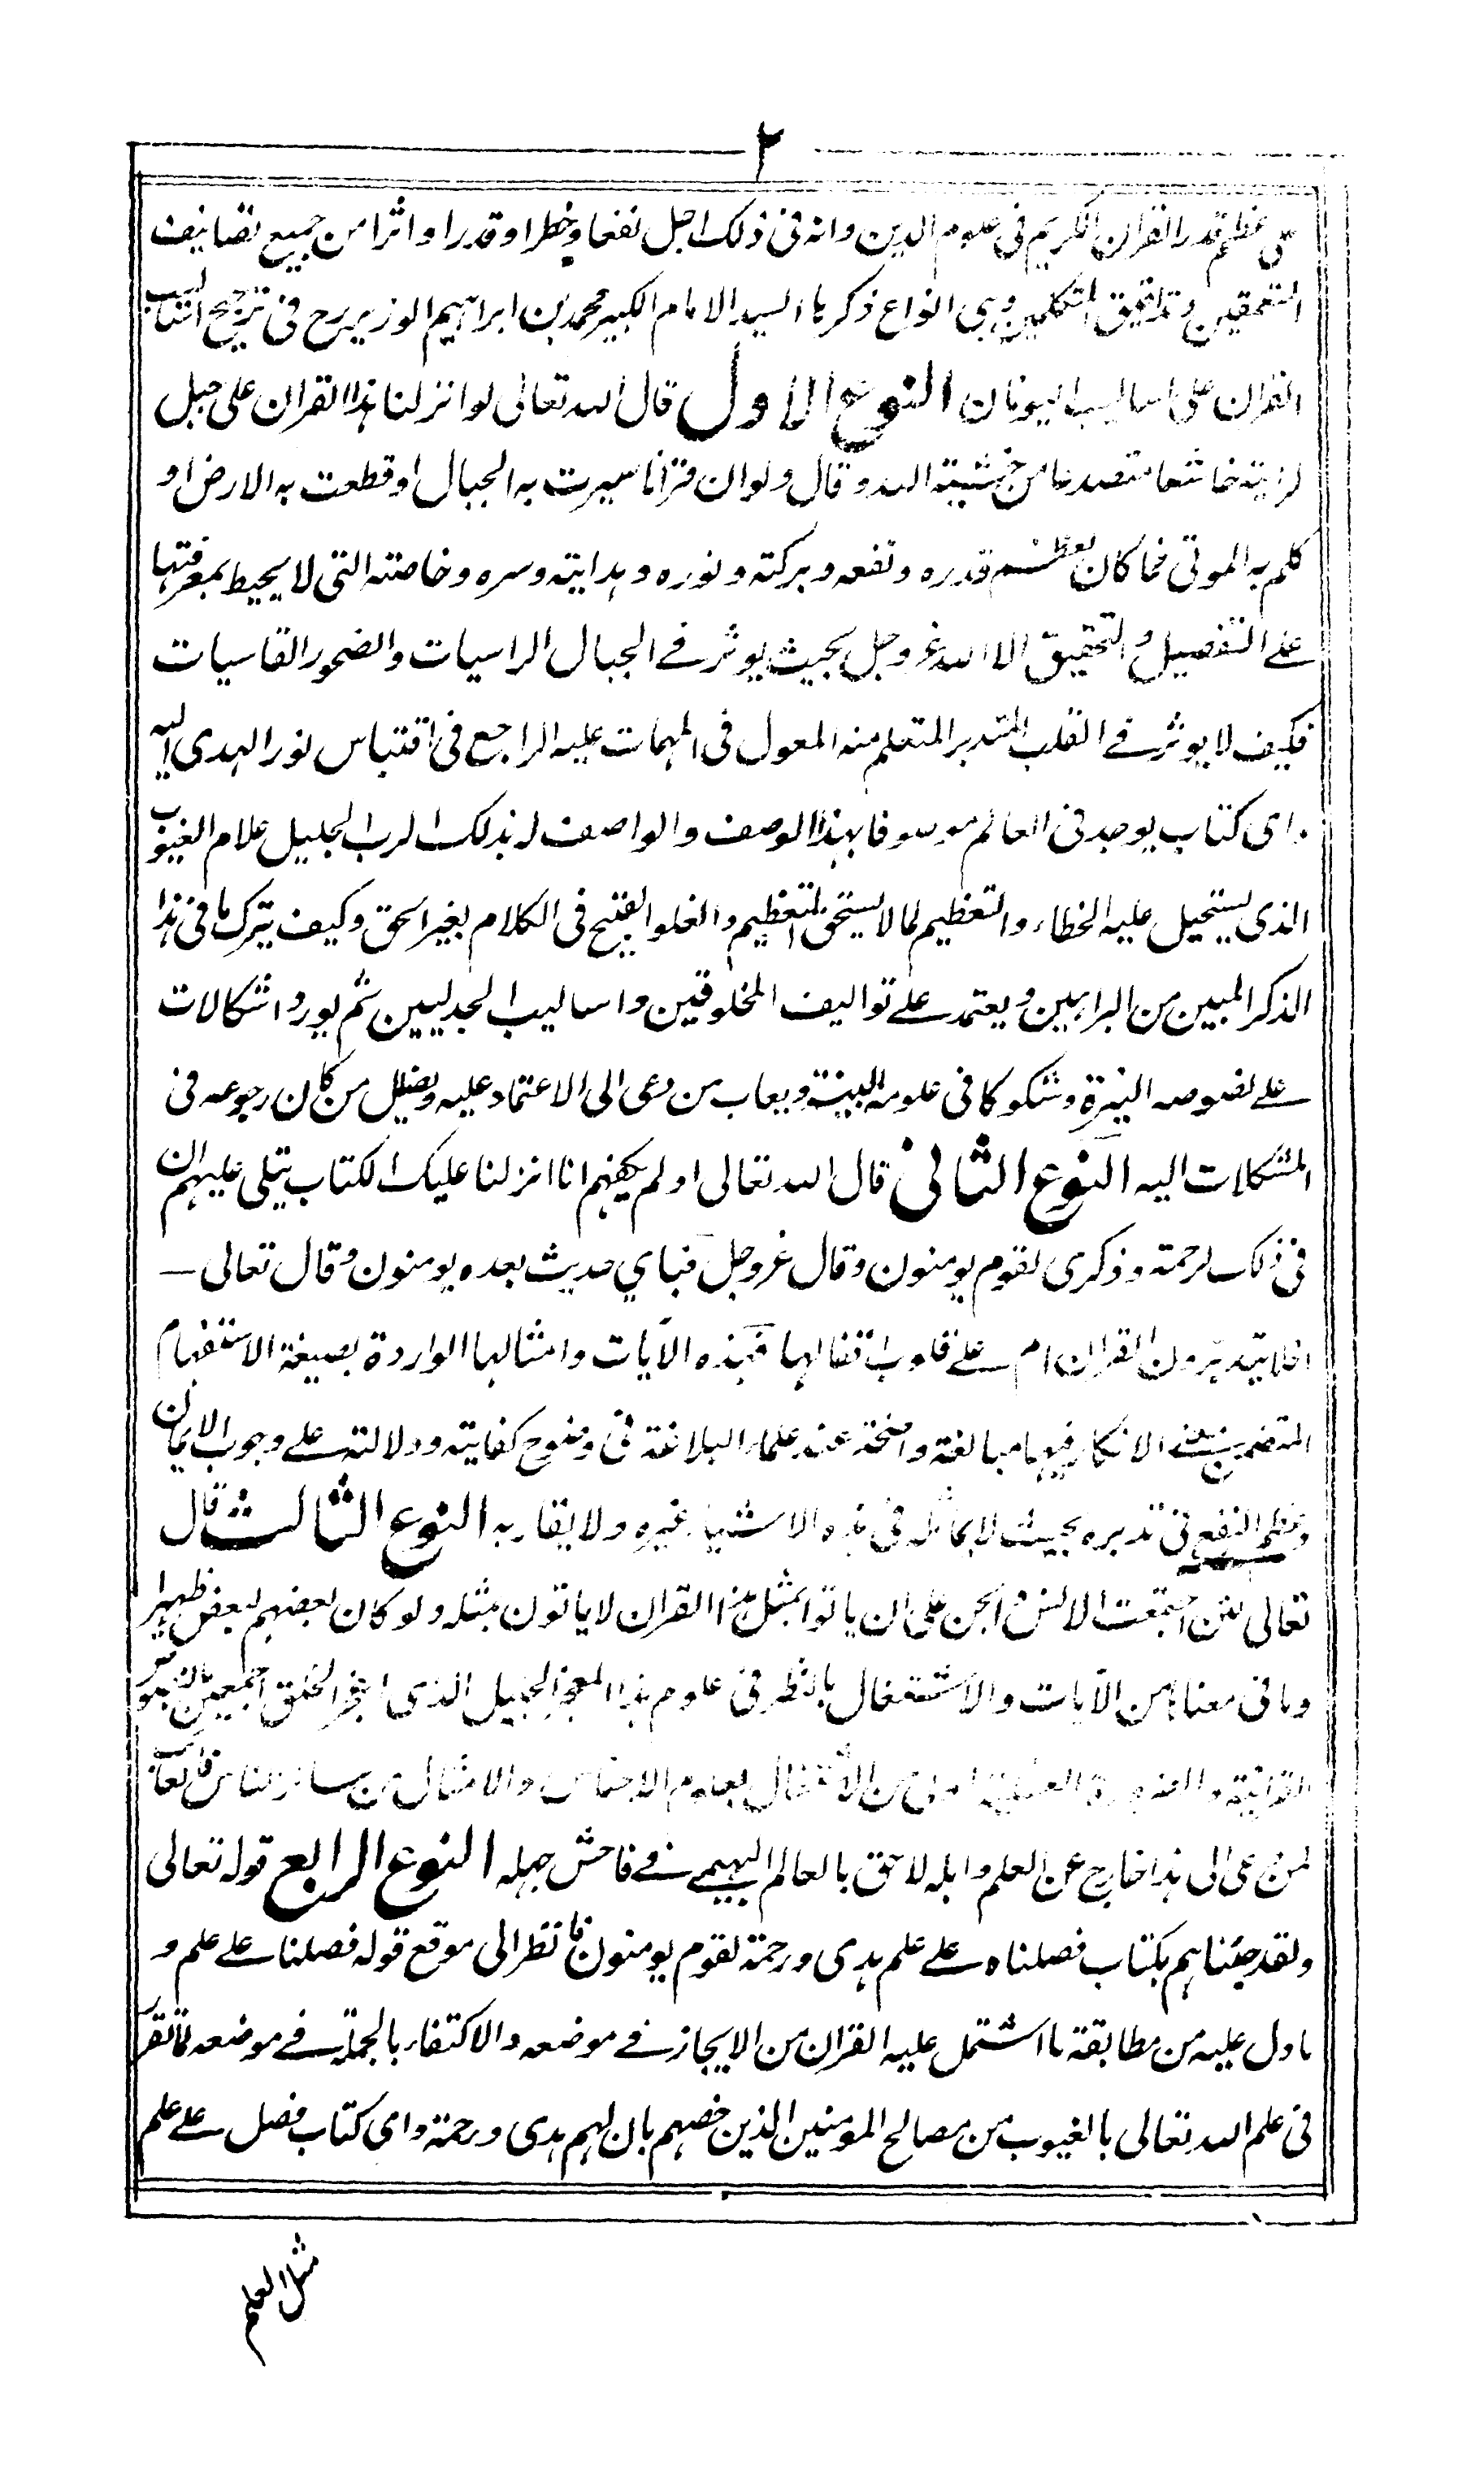 ٢
على عظم قدر القران الكريم فى علوم الدين وانه فى ذلك اجل نفعا وخطرا وقدرا واثرا من جميع تصانيف
المتعمقين وتدقيق المتكلمين وهى انواع ذكرها السيد الامام الكبير محمد بن ابراهيم الوزير رح فى ترجيح اساليب
القران على اساليب اليونان النوع الاول قال الله تعالى لو انزلنا هذا القران على جبل
لرايته خاشعا متصدعا من خشية الله وقال ولو ان قرانا سيرت به الجبال او قطعت به الارض او
كلم به الموتى فما كان لعظم قدره ونفعه وبركته ونوره وهدايته وسره وخاصته التى لا يحيط بمعرفتها
على التفصيل والتحقيق الا الله عز وجل بحيث يوثر فى الجبال الراسيات والصخور القاسيات
فكيف لا يوثر فى القلب المتدبر المتعلم منه المعول فى المهمات عليه الراجع فى اقتباس نور الهدى اليه
واى كتاب يوجد فى العالم موسوفا بهذا الوصف والواصف له بذلك الرب الجليل علام الغيوب
الذى يستحيل عليه الخطاء والتعظيم لما لا يستحق التعظيم والغلو القبيح فى الكلام بغير الحق وكيف يترك ما فى هذا
الذكر المبين من البراهين ويعتمد على تواليف المخلوقين واساليب الجدليين ثم يورد اشكالات
على نصوصه النيرة وشكوكا فى علومه البينة ويعاب من دعى الى الاعتماد عليه ويضلل من كان رجوعه فى
المشكلات اليه النوع الثانى قال الله تعالى اولم يكفهم انا انزلنا عليك الكتاب يتلى عليهم ان
فى ذلك لرحمة وذكرى لقوم يومنون وقال عز وجل فباي حديث بعده يومنون وقال تعالى
افلا يتدبرون القران ام على قلوب اقفالها فهذه الآيات وامثالها الواردة بصيغة الاستفهام
المتضمن معنى الانكار فيها مبالغة واضحة عند علماء البلاغة فى وضوح كفايته ودلالته على وجوب الايمان
وعظم النفع فى تدبره بحيث لا يماثله فى هذه الاشياء غيره ولا يقاربه النوع الثالث قال
تعالى لئن اجتمعت الانس والجن على ان ياتوا بمثل هذا القران لا ياتون بمثله ولو كان بعضهم لبعض ظهيرا
وما فى معناها من الآيات والاشتغال بالنظر فى علوم هذا المعجز الجليل الذى اعجز الخلق اجمعين بالنصوص
القرانية والضرورة العقلية اولى من الاشتغال بعلوم الاجناس والامثال من سائر الناس
لمن دعى الى هذا خارج عن العلم وابله لاحق بالعالم البهيمى فى فاحش جهله النوع الرابع قوله تعالى
ولقد جئناهم بكتاب فصلناه على علم هدى ورحمة لقوم يومنون فانظر الى موقع قوله فصلنا على علم و
ما دل عليه من مطابقة ما اشتمل عليه القران من الايجاز فى موضعه والاكتفاء بالجملة فى موضعه لما تقرر
فى علم الله تعالى بالغيوب من مصالح المومنين الذين خصهم بان لهم هدى ورحمة واى كتاب فصل على علم
مثل العلم